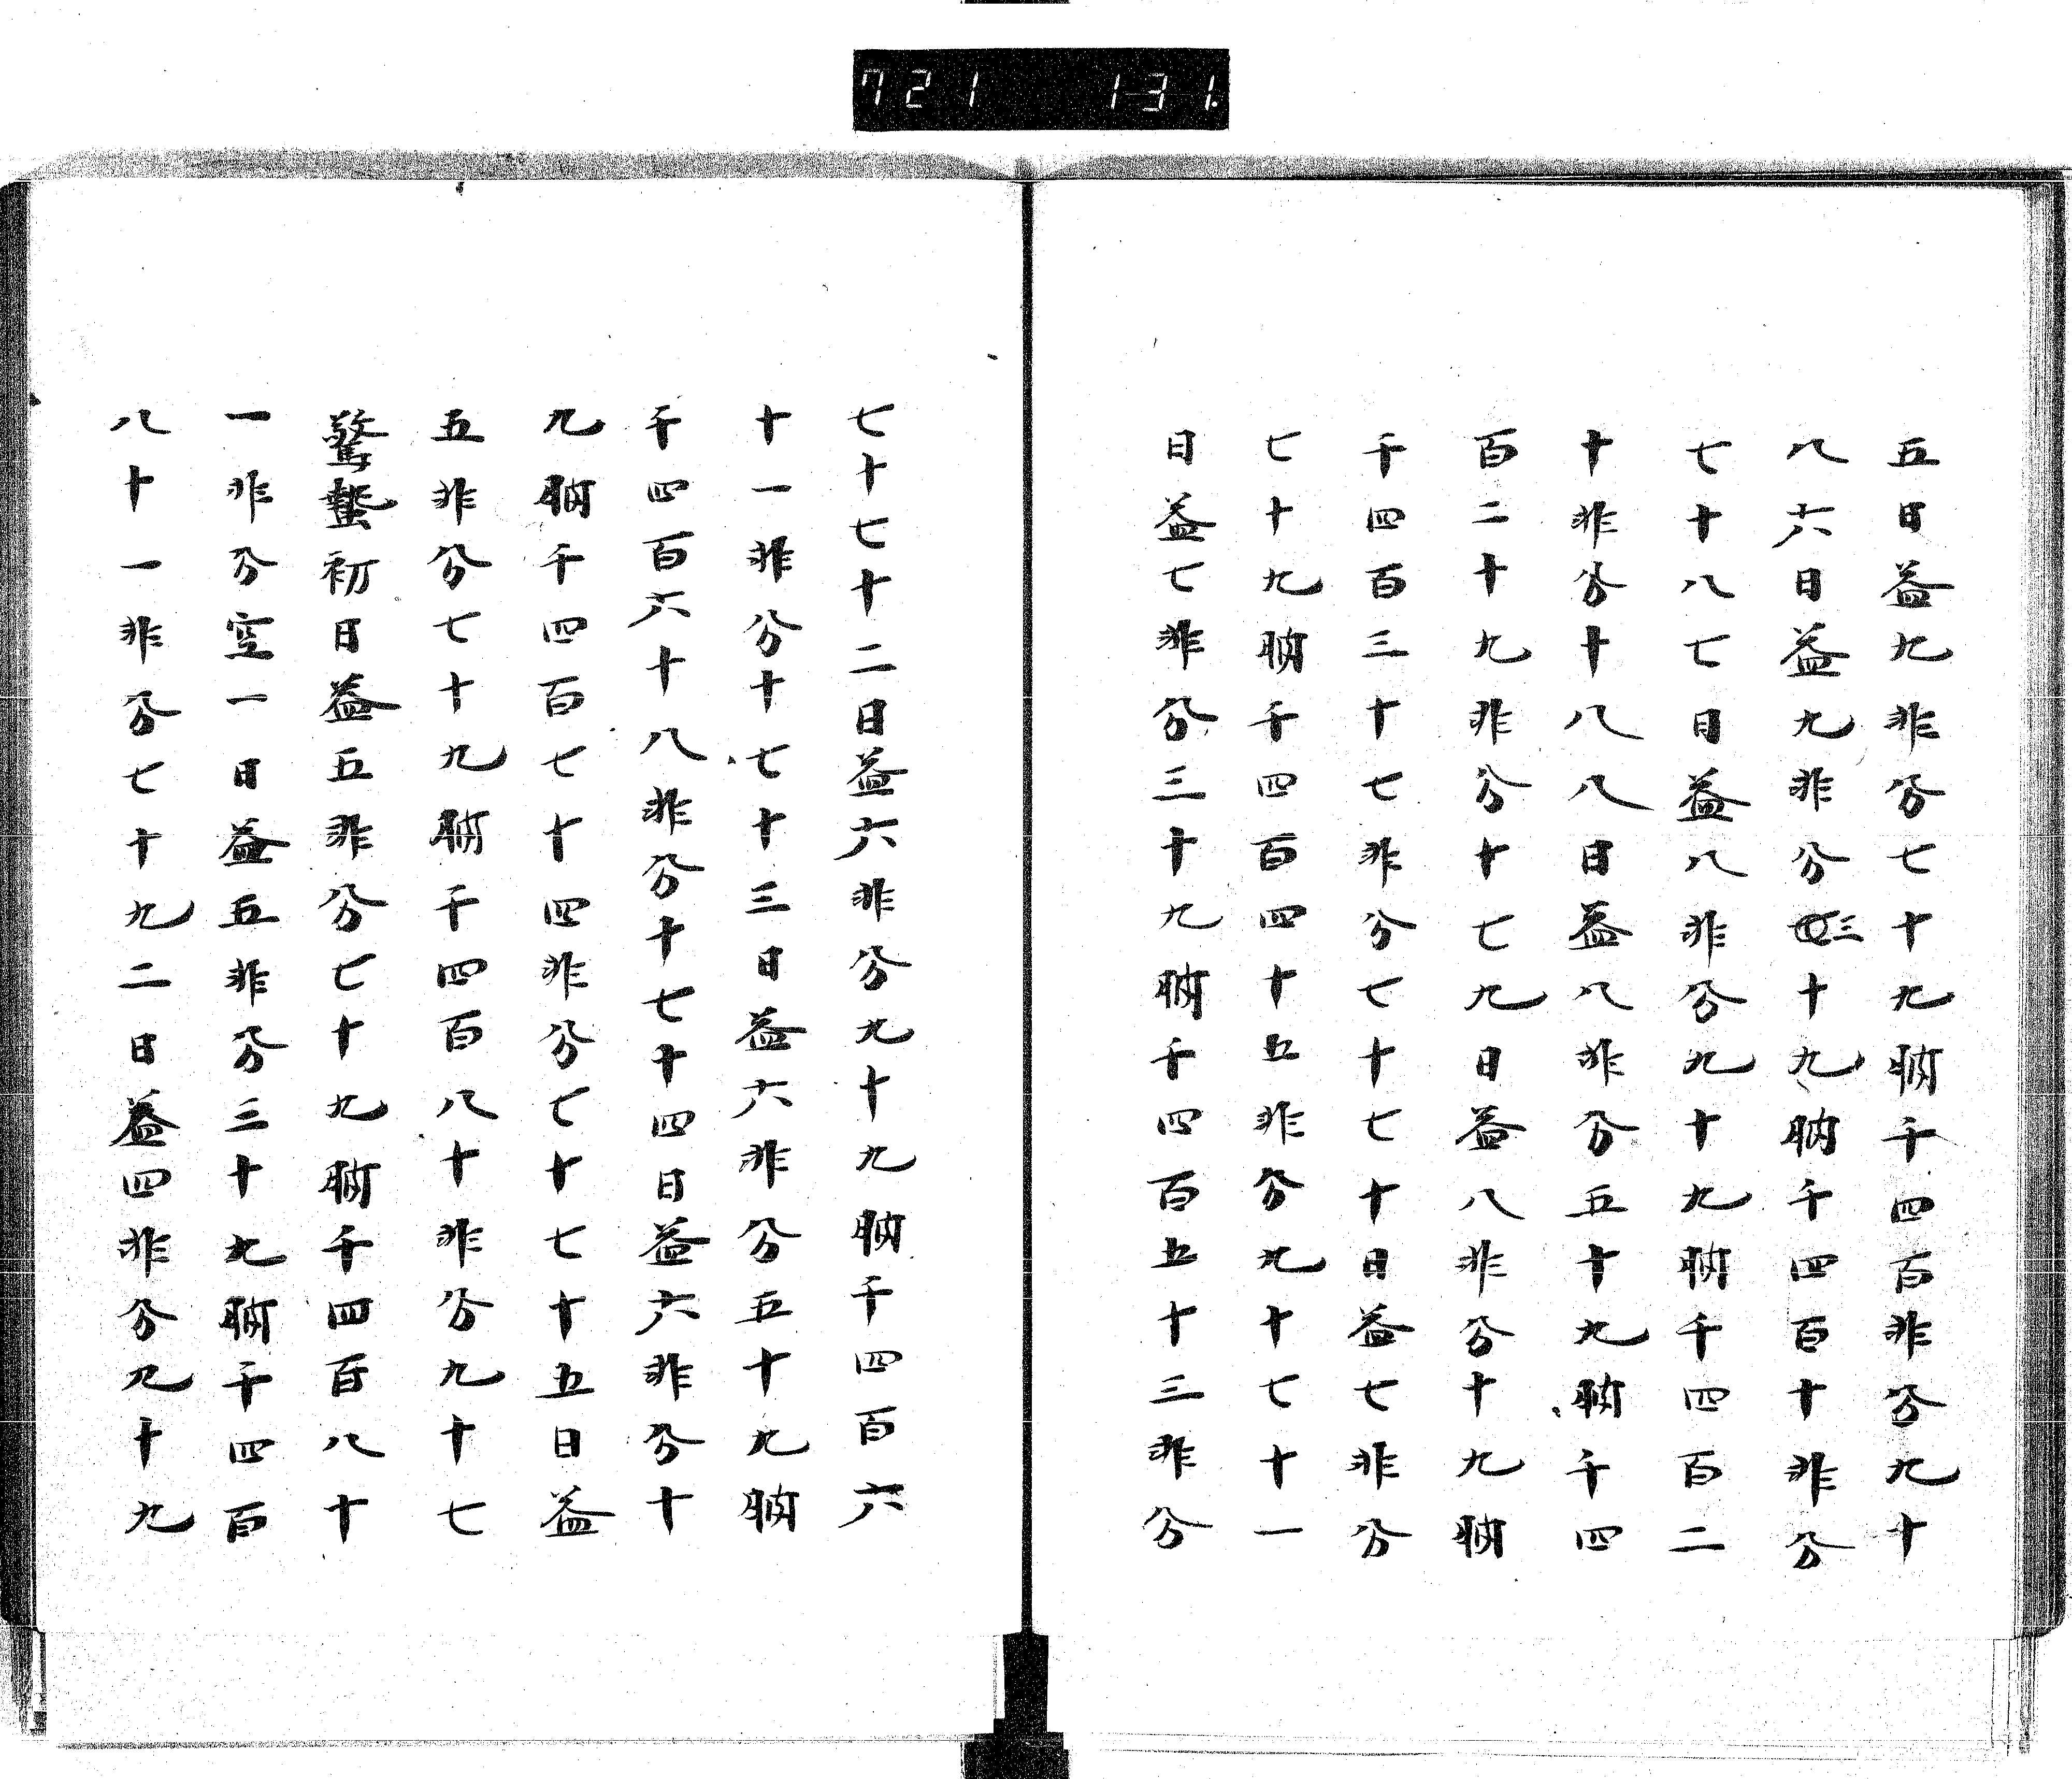 721 131.
五日益九非分七十九朒千四百非分九十
八六日益九非分三十九朒千四百十非分
七十八七日益八非分九十九朒千四百二
十非分十八八日益八非分五十九朒千四
百二十九非分十七九日益八非分十九朒
千四百三十七非分七十七十日益七非分
七十九朒千四百四十五非分九十七十一
日益七非分三十九朒千四百五十三非分
七十七十二日益六非分九十九朒千四百六
十一非分十七十三日益六非分五十九朒
千四百六十八非分十七十四日益六非分十
九朒千四百七十四非分七十七十五日益
五非分七十九朒千四百八十非分九十七
驚蟄初日益五非分七十九朒千四百八十
一非分空一日益五非分三十九朒千四百
八十一非分七十九二日益四非分九十九